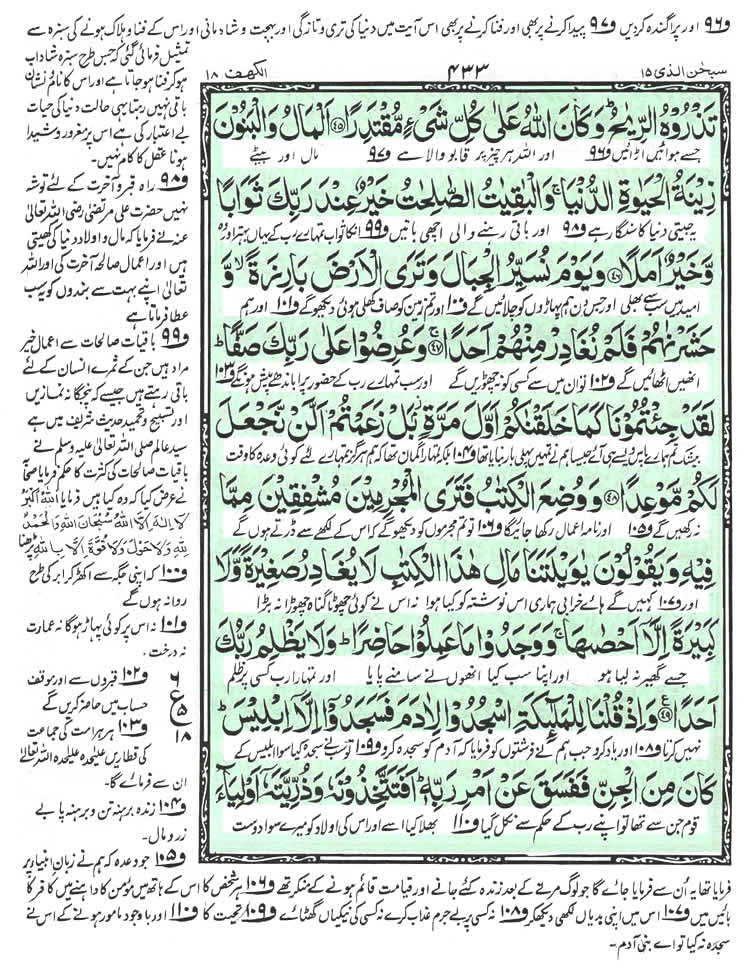 و۹۶ اور پراگندہ کردیں و۹۷ پیدا کرنے پر بھی اور فنا کرنے پر بھی اس آیت میں دنیا کی تری و تازگی اور بہجت و شادمانی اور اس کے فنا و ہلاک ہونے کی سبزہ سے
سبحٰن الذی ۱۵
۴۳۳
الکھف ۱۸
تَذْرُوْهُ الرِّیٰحُ ؕ وَ كَانَ اللّٰهُ عَلٰى كُلِّ شَیْءٍ مُّقْتَدِرًا ﴿۴۵﴾ اَلْمَالُ وَ الْبَنُوْنَ
جسے ہوائیں اڑائیں و۹۶ اور اللہ ہر چیز پر قابو والا ہے و۹۷ مال اور بیٹے
زِیْنَةُ الْحَیٰوةِ الدُّنْیَا ۚ وَ الْبٰقِیٰتُ الصّٰلِحٰتُ خَیْرٌ عِنْدَ رَبِّكَ ثَوَابًا
یہ جیتی دنیا کا سنگار ہے و۹۸ اور باقی رہنے والی اچھی باتیں و۹۹ انکا ثواب تمہارے رب کے یہاں بہتر اور وہ
وَّ خَیْرٌ اَمَلًا ﴿۴۶﴾ وَ یَوْمَ نُسَیِّرُ الْجِبَالَ وَ تَرَى الْاَرْضَ بَارِزَةً ۙ وَّ
امید میں سب سے بھلی اور جس دن ہم پہاڑوں کو چلائیں گے و۱۰۰ اور تم زمین کو صاف کھلی ہوئی دیکھو گے و۱۰۱ اور ہم
حَشَرْنٰهُمْ فَلَمْ نُغَادِرْ مِنْهُمْ اَحَدًا ﴿۴۷﴾ وَ عُرِضُوْا عَلٰى رَبِّكَ صَفًّا ؕ
انھیں اٹھائیں گے و۱۰۲ تو ان میں سے کسی کو نہ چھوڑیں گے اور سب تمہارے رب کے حضور پرا باندھے پیش ہونگے و۱۰۳
لَقَدْ جِئْتُمُوْنَا كَمَا خَلَقْنٰكُمْ اَوَّلَ مَرَّةٍۭ ؗ بَلْ زَعَمْتُمْ اَلَّنْ نَّجْعَلَ
بیشک تم ہمارے پاس ویسے ہی آئے جیسا ہم نے تمہیں پہلی بار بنایا تھا و۱۰۴ بلکہ تمہارا گمان تھا کہ ہم ہرگز تمہارے لئے کوئی وعدہ کا وقت
لَكُمْ مَّوْعِدًا ﴿۴۸﴾ وَ وُضِعَ الْكِتٰبُ فَتَرَى الْمُجْرِمِیْنَ مُشْفِقِیْنَ مِمَّا
نہ رکھیں گے و۱۰۵ اور نامہ اعمال رکھا جائیگا و۱۰۶ تو تم مجرموں کو دیکھو گے کہ اس کے لکھے سے ڈرتے ہوں گے
فِیْهِ وَ یَقُوْلُوْنَ یٰوَیْلَتَنَا مَالِ هٰذَا الْكِتٰبِ لَا یُغَادِرُ صَغِیْرَةً وَّ لَا
اور و۱۰۷ کہیں گے ہائے خرابی ہماری اس نوشتہ کو کیا ہوا نہ اس نے کوئی چھوٹا گناہ چھوڑا نہ بڑا
كَبِیْرَةً اِلَّاۤ اَحْصٰىهَا ۚ وَ وَجَدُوْا مَا عَمِلُوْا حَاضِرًا ؕ وَ لَا یَظْلِمُ رَبُّكَ
جسے گھیر نہ لیا ہو اور اپنا سب کیا انھوں نے سامنے پایا اور تمہارا رب کسی پر ظلم
اَحَدًا ﴿۴۹﴾ وَ اِذْ قُلْنَا لِلْمَلٰٓىٕكَةِ اسْجُدُوْا لِاٰدَمَ فَسَجَدُوْۤا اِلَّاۤ اِبْلِیْسَ ؕ
نہیں کرتا و۱۰۸ اور یاد کرو جب ہم نے فرشتوں کو فرمایا کہ آدم کو سجدہ کرو و۱۰۹ تو سب نے سجدہ کیا سوا ابلیس کے
كَانَ مِنَ الْجِنِّ فَفَسَقَ عَنْ اَمْرِ رَبِّهٖ ؕ اَفَتَتَّخِذُوْنَهٗ وَ ذُرِّیَّتَهٗۤ اَوْلِیَآءَ
قوم جن سے تھا تو اپنے رب کے حکم سے نکل گیا و۱۱۰ بھلا کیا اسے اور اس کی اولاد کو میرے سوا دوست
تمثیل فرمائی گئی کہ جس طرح سبزہ شاداب
ہوکر فنا ہو جاتا ہے اور اس کا نام و نشان
باقی نہیں رہتا یہی حالت دنیا کی حیات
بے اعتبار کی ہے اس پر مغرور و شیدا
ہونا عقل کا کام نہیں۔
و۹۸ راہ قبر و آخرت کے لئے توشہ
نہیں حضرت علی مرتضیٰ رضی اللہ تعالیٰ
عنہ نے فرمایا کہ مال و اولاد دنیا کی کھیتی
ہیں اور اعمال صالحہ آخرت کی اور اللہ
تعالیٰ اپنے بہت سے بندوں کو یہ سب
عطا فرماتا ہے
و۹۹ باقیات صالحات سے اعمال خیر
مراد ہیں جن کے ثمرے انسان کے لئے
باقی رہتے ہیں جیسے کہ پنجگانہ نمازیں
اور تسبیح و تحمید حدیث شریف میں ہے
سید عالم صلی اللہ تعالیٰ علیہ وسلم نے
باقیات صالحات کی کثرت کا حکم فرمایا صحابہ
نے عرض کیا کہ وہ کیا ہیں فرمایا اَللّٰهُ اَكْبَرُ
لَا اِلٰهَ اِلَّا اللّٰهُ سُبْحَانَ اللّٰهِ وَالْحَمْدُ
لِلّٰهِ وَلَا حَوْلَ وَلَا قُوَّةَ اِلَّا بِاللّٰهِ پڑھنا
و۱۰۰ کہ اپنی جگہ سے اکھڑ کر ابر کی طرح
روانہ ہوں گے
و۱۰۱ نہ اس پر کوئی پہاڑ ہوگا نہ عمارت
نہ درخت۔
و۱۰۲ قبروں سے اور موقف
حساب میں حاضر کریں گے
و۱۰۳ ہر ہر امت کی جماعت
کی قطاریں علیحدہ علیحدہ اللہ تعالیٰ
ان سے فرمائے گا۔
۶
ع
۵
۱۸
و۱۰۴ زندہ برہنہ تن و برہنہ پا بے
زر و مال۔
و۱۰۵ جو وعدہ کہ ہم نے زبان انبیاء پر
فرمایا تھا یہ اُن سے فرمایا جائے گا جو لوگ مرنے کے بعد زندہ کئے جانے اور قیامت قائم ہونے کے منکر تھے و۱۰۶ ہر شخص کا اس کے ہاتھ میں مؤمن کا داہنے میں کافر کا
بائیں میں و۱۰۷ اس میں اپنی بدیاں لکھی دیکھکر و۱۰۸ نہ کسی پر بے جرم عذاب کرے نہ کسی کی نیکیاں گھٹائے و۱۰۹ تحیت کا و۱۱۰ اور باوجود مامور ہونے کے اس نے
سجدہ نہ کیا تو اے بنی آدم۔